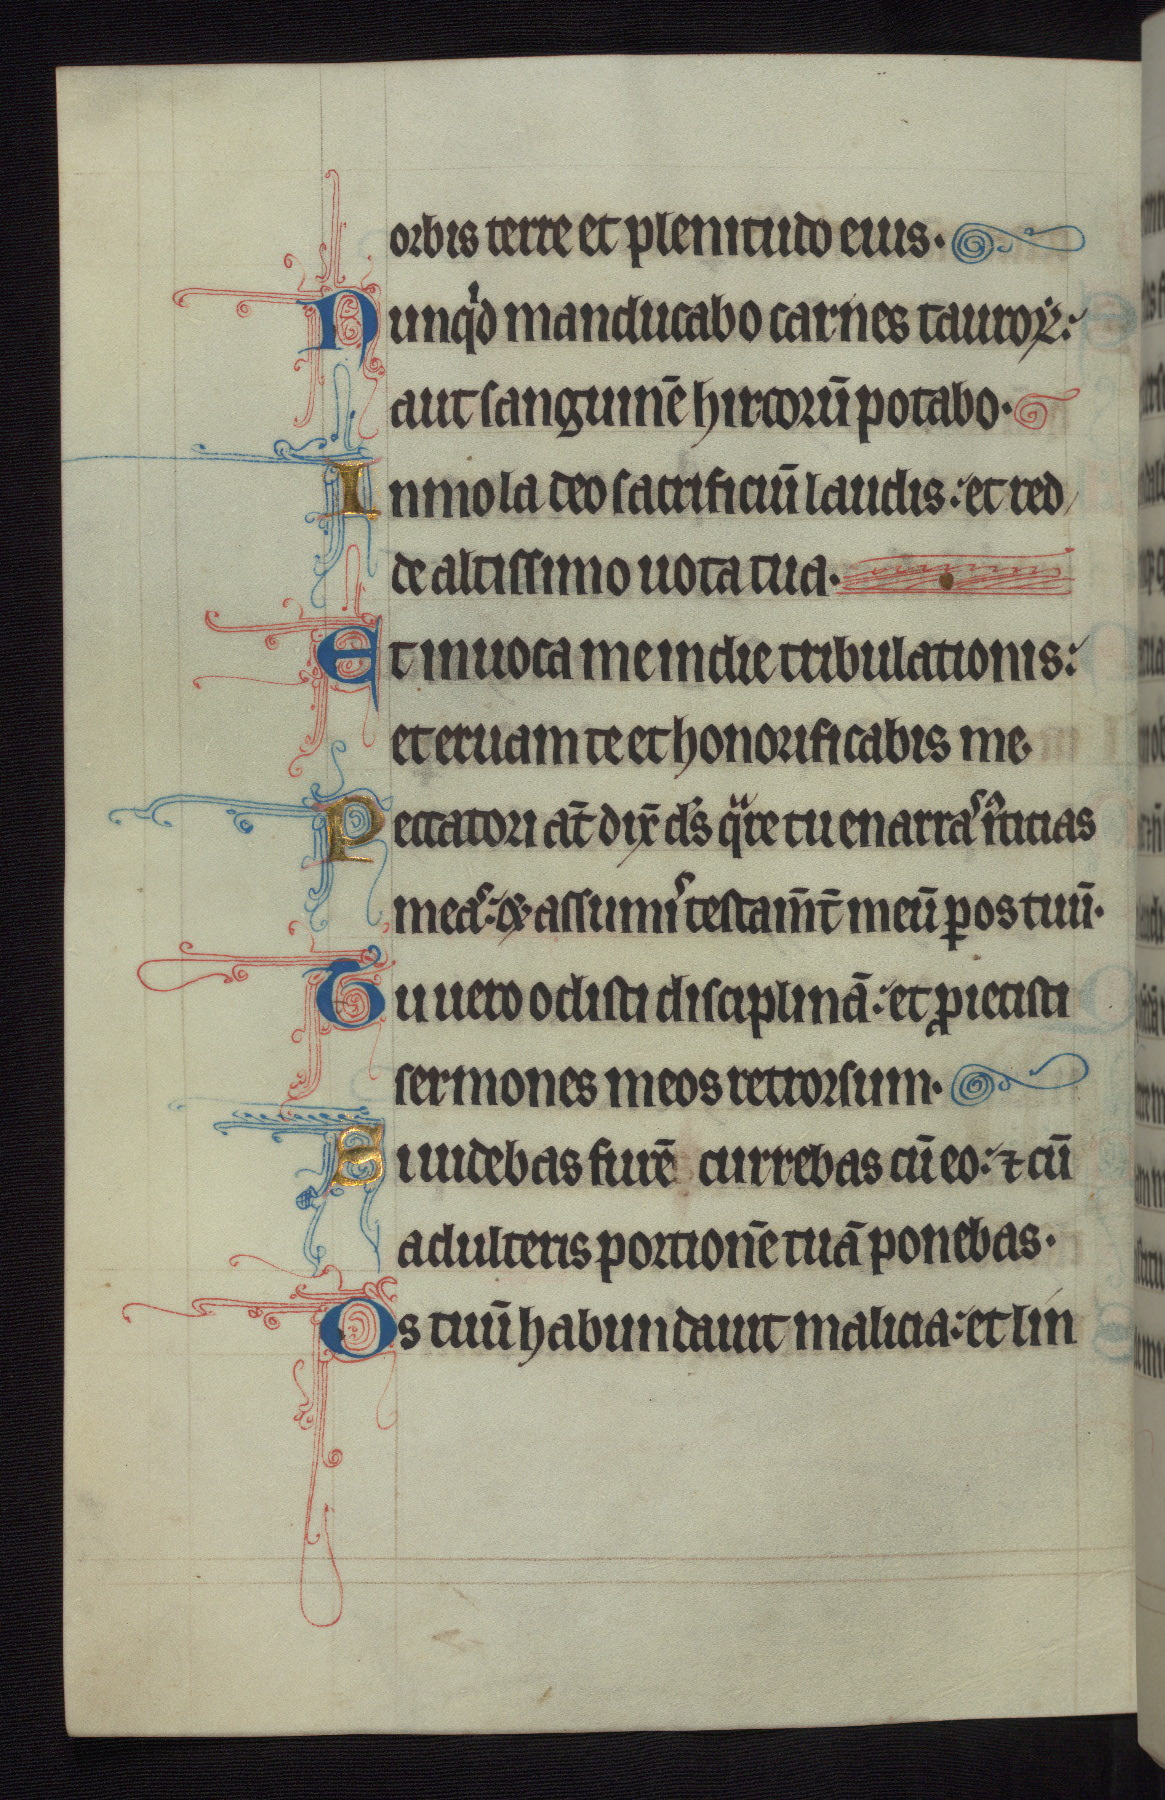 orbis terre et plenitudo eius.
Nunqͥd manducabo carnes tauroꝝ:
aut sanguinē hircorū potabo.
Inmola deo sacrificiū laudis: et red
de altissimo uota tua.
Et inuoca me in die tribulationis:
et eruam te et honorificabis me.
Peccatori aūt dix̄ ds̄ qͣre tu enarraˢ iͧticias
meaˢ: ⁊ assumiˢ testam̄t̄ meū ꝑ os tuū.
Tu uero odisti disciplinā: et ꝓiecisti
sermones meos retrorsum.
Si uidebas furē currebas cū eo: ⁊ cū
adulteris portionē tuā ponebas.
Os tuū habundauit malicia: et lin